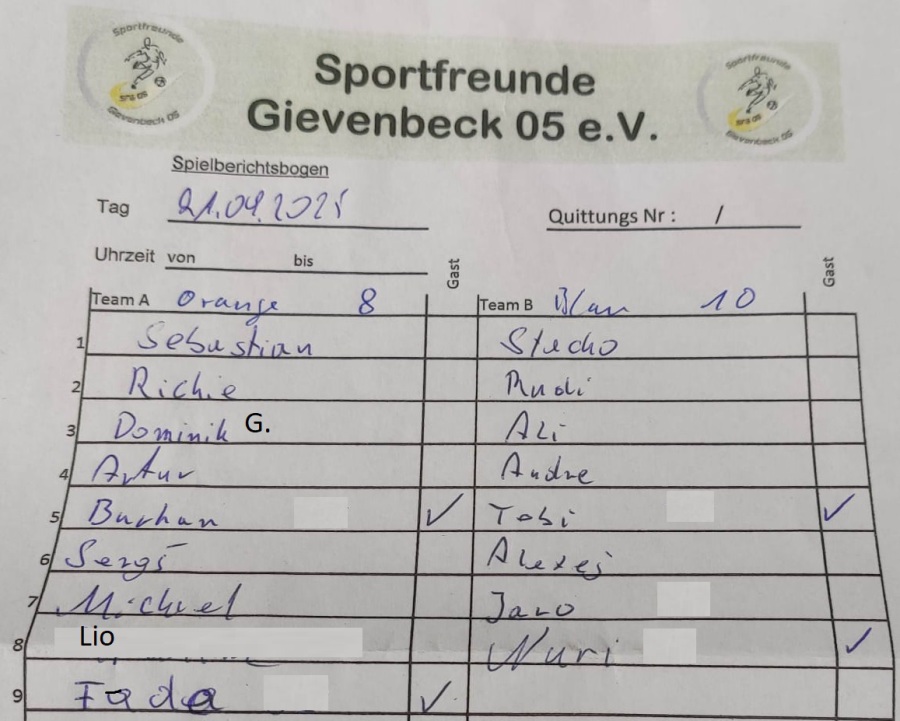 Sportfreunde
SFG 05
Gievenbeck 05
Sportfreunde
Gievenbeck 05 e.V.
Sportfreunde
SFG 05
Gievenbeck 05
Spielberichtsbogen
Tag 21.04.2025
Quittungs Nr : /
Uhrzeit von bis
Gast
Gast
Team A Orange 8 Team B Blau 10
1 Sebastian Stecho
2 Richie Rudi
3 Dominik G. Ali
4 Artur Andre
5 Burhan ✓ Tobi ✓
6 Sergi Alexej
7 Michael Jaro
8 Lio Nuri ✓
9 Fada ✓